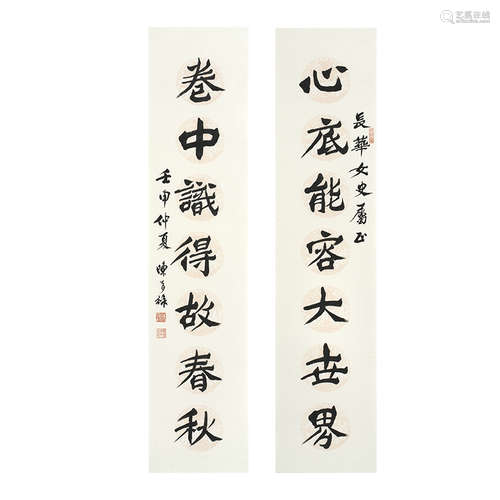 心底能容大世界
長華女史屬正
卷中識得故春秋
壬申仲夏